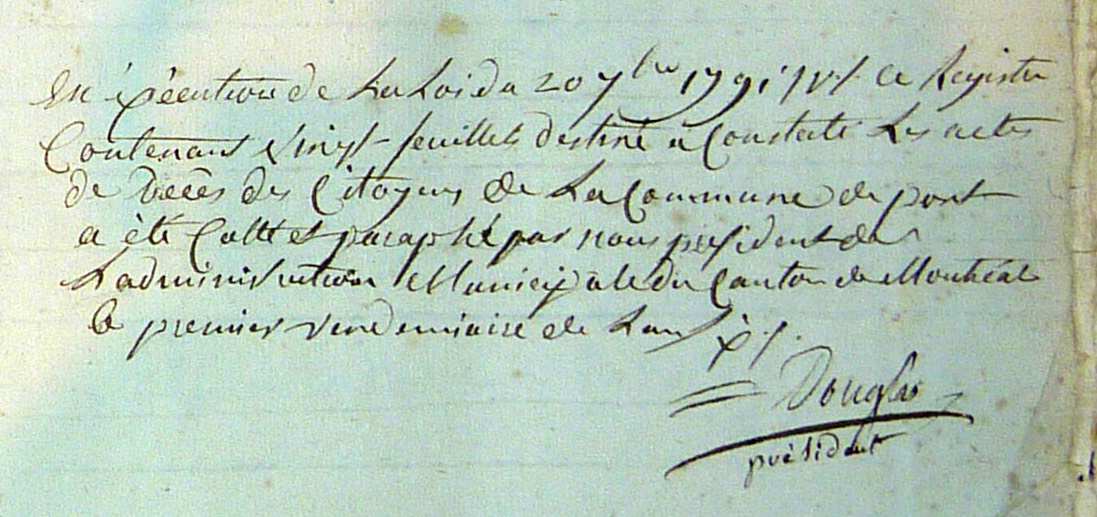 En éxécution de La Loi du 20 7bre 1791 ce Registre
Contenant vingt feuillets destiné a Constater Les actes
de Décès des Citoyens de La Commune de pont
a été Cotté et paraphé par nous president de
L'administration Municipale du Canton de Montréal
le premier vendemiaire de L'an
Douglas
président